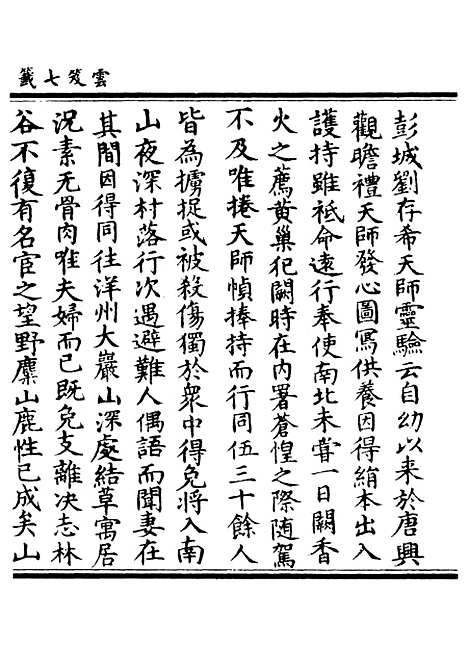 雲笈七籤
彭城劉存希天師靈驗云自幼以来於唐興
觀瞻禮天師發心圖寫供養因得絹本出入
護持雖祗命遠行奉使南北未甞一日闕香
火之薦黄巢犯闕時在内署蒼惶之際随駕
不及唯捲天師幀捧持而行同伍三十餘人
皆為擄捉或被殺傷獨於衆中得免将入南
山夜深村落行次遇避難人偶語而聞妻在
其間因得同往洋州大巖山深處結草寓居
况素无骨肉唯夫婦而已既免支離决志林
谷不復有名宦之望野麋山鹿性已成矣山